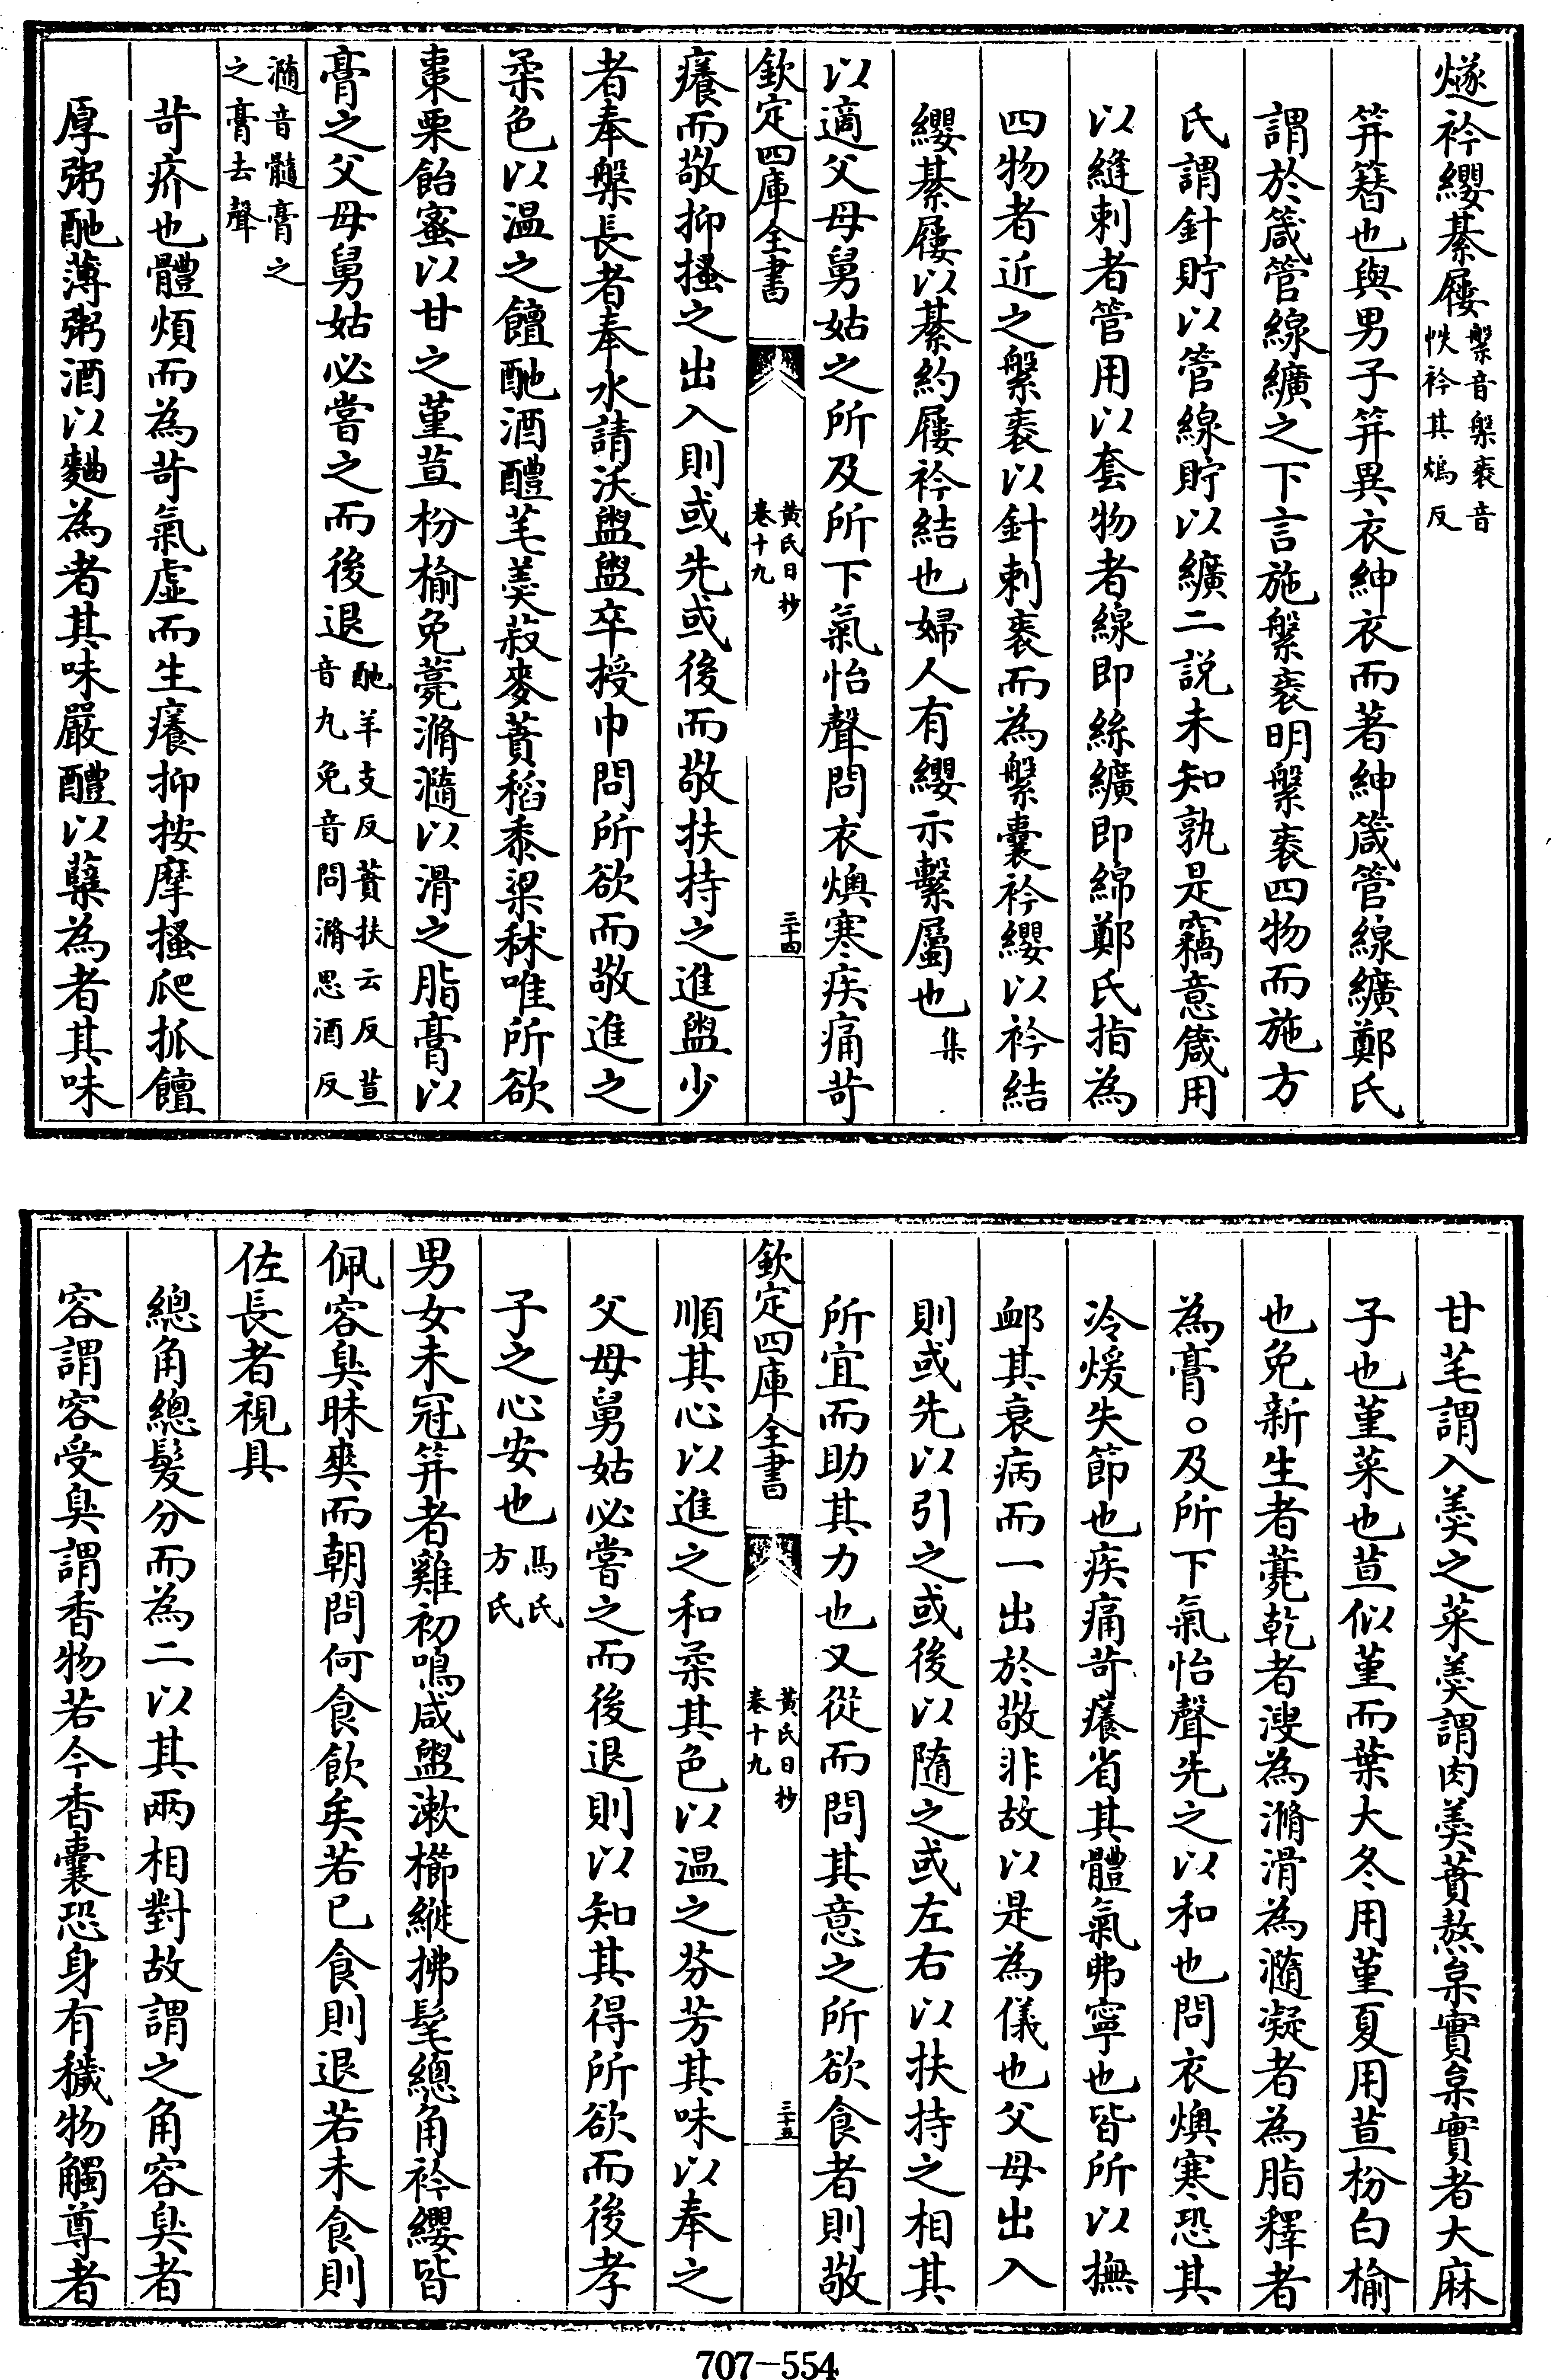 燧衿纓綦屨槃音槃袠音帙衿其鴆反
笄簪也與男子笄異衣紳衣而著紳箴管線纊鄭氏
謂於箴管線纊之下言施槃袠明槃袠四物而施方
氏謂針貯以管線貯以纊二説未知孰是竊意箴用
以縫刺者管用以套物者線即絲纊即綿鄭氏指為
四物者近之槃袠以針刺袠而為槃囊衿纓以衿結
纓綦屨以綦約屨衿結也婦人有纓示繫屬也集
以適父母舅姑之所及所下氣怡聲問衣燠寒疾痛苛
欽定四庫全書 黃氏日抄 卷十九 三十四
癢而敬抑搔之出入則或先或後而敬扶持之進盥少
者奉槃長者奉水請沃盥盥卒授巾問所欲而敬進之
柔色以温之饘酏酒醴芼羮菽麥蕡稻黍梁秫唯所欲
棗栗飴蜜以甘之菫荁枌榆免薧滫瀡以滑之脂膏以
膏之父母舅姑必嘗之而後退酏羊支反蕡扶云反荁音九免音問滫思酒反
瀡音髓膏之之膏去聲
苛疥也體煩而為苛氣虛而生癢抑按摩搔爬抓饘
厚粥酏薄粥酒以麯為者其味嚴醴以糵為者其味
甘芼謂入羮之菜羮謂肉羮蕡熬枲實枲實者大麻
子也菫菜也荁似菫而葉大冬用菫夏用荁枌白榆
也免新生者薧乾者溲為滫滑為瀡凝者為脂釋者
為膏○及所下氣怡聲先之以和也問衣燠寒恐其
冷煖失節也疾痛苛癢省其體氣弗寧也皆所以撫
䘏其衰病而一出於敬非故以是為儀也父母出入
則或先以引之或後以隨之或左右以扶持之相其
所宜而助其力也又從而問其意之所欲食者則敬
欽定四庫全書 黃氏日抄 卷十九 三十五
順其心以進之和柔其色以温之芬芳其味以奉之
父母舅姑必嘗之而後退則以知其得所欲而後孝
子之心安也馬氏方氏
男女未冠笄者雞初鳴咸盥漱櫛縰拂髦總角衿纓皆
佩容臭昧爽而朝問何食飲矣若已食則退若未食則
佐長者視具
總角總髮分而為二以其兩相對故謂之角容臭者
容謂容受臭謂香物若今香囊恐身有穢物觸尊者
707-554